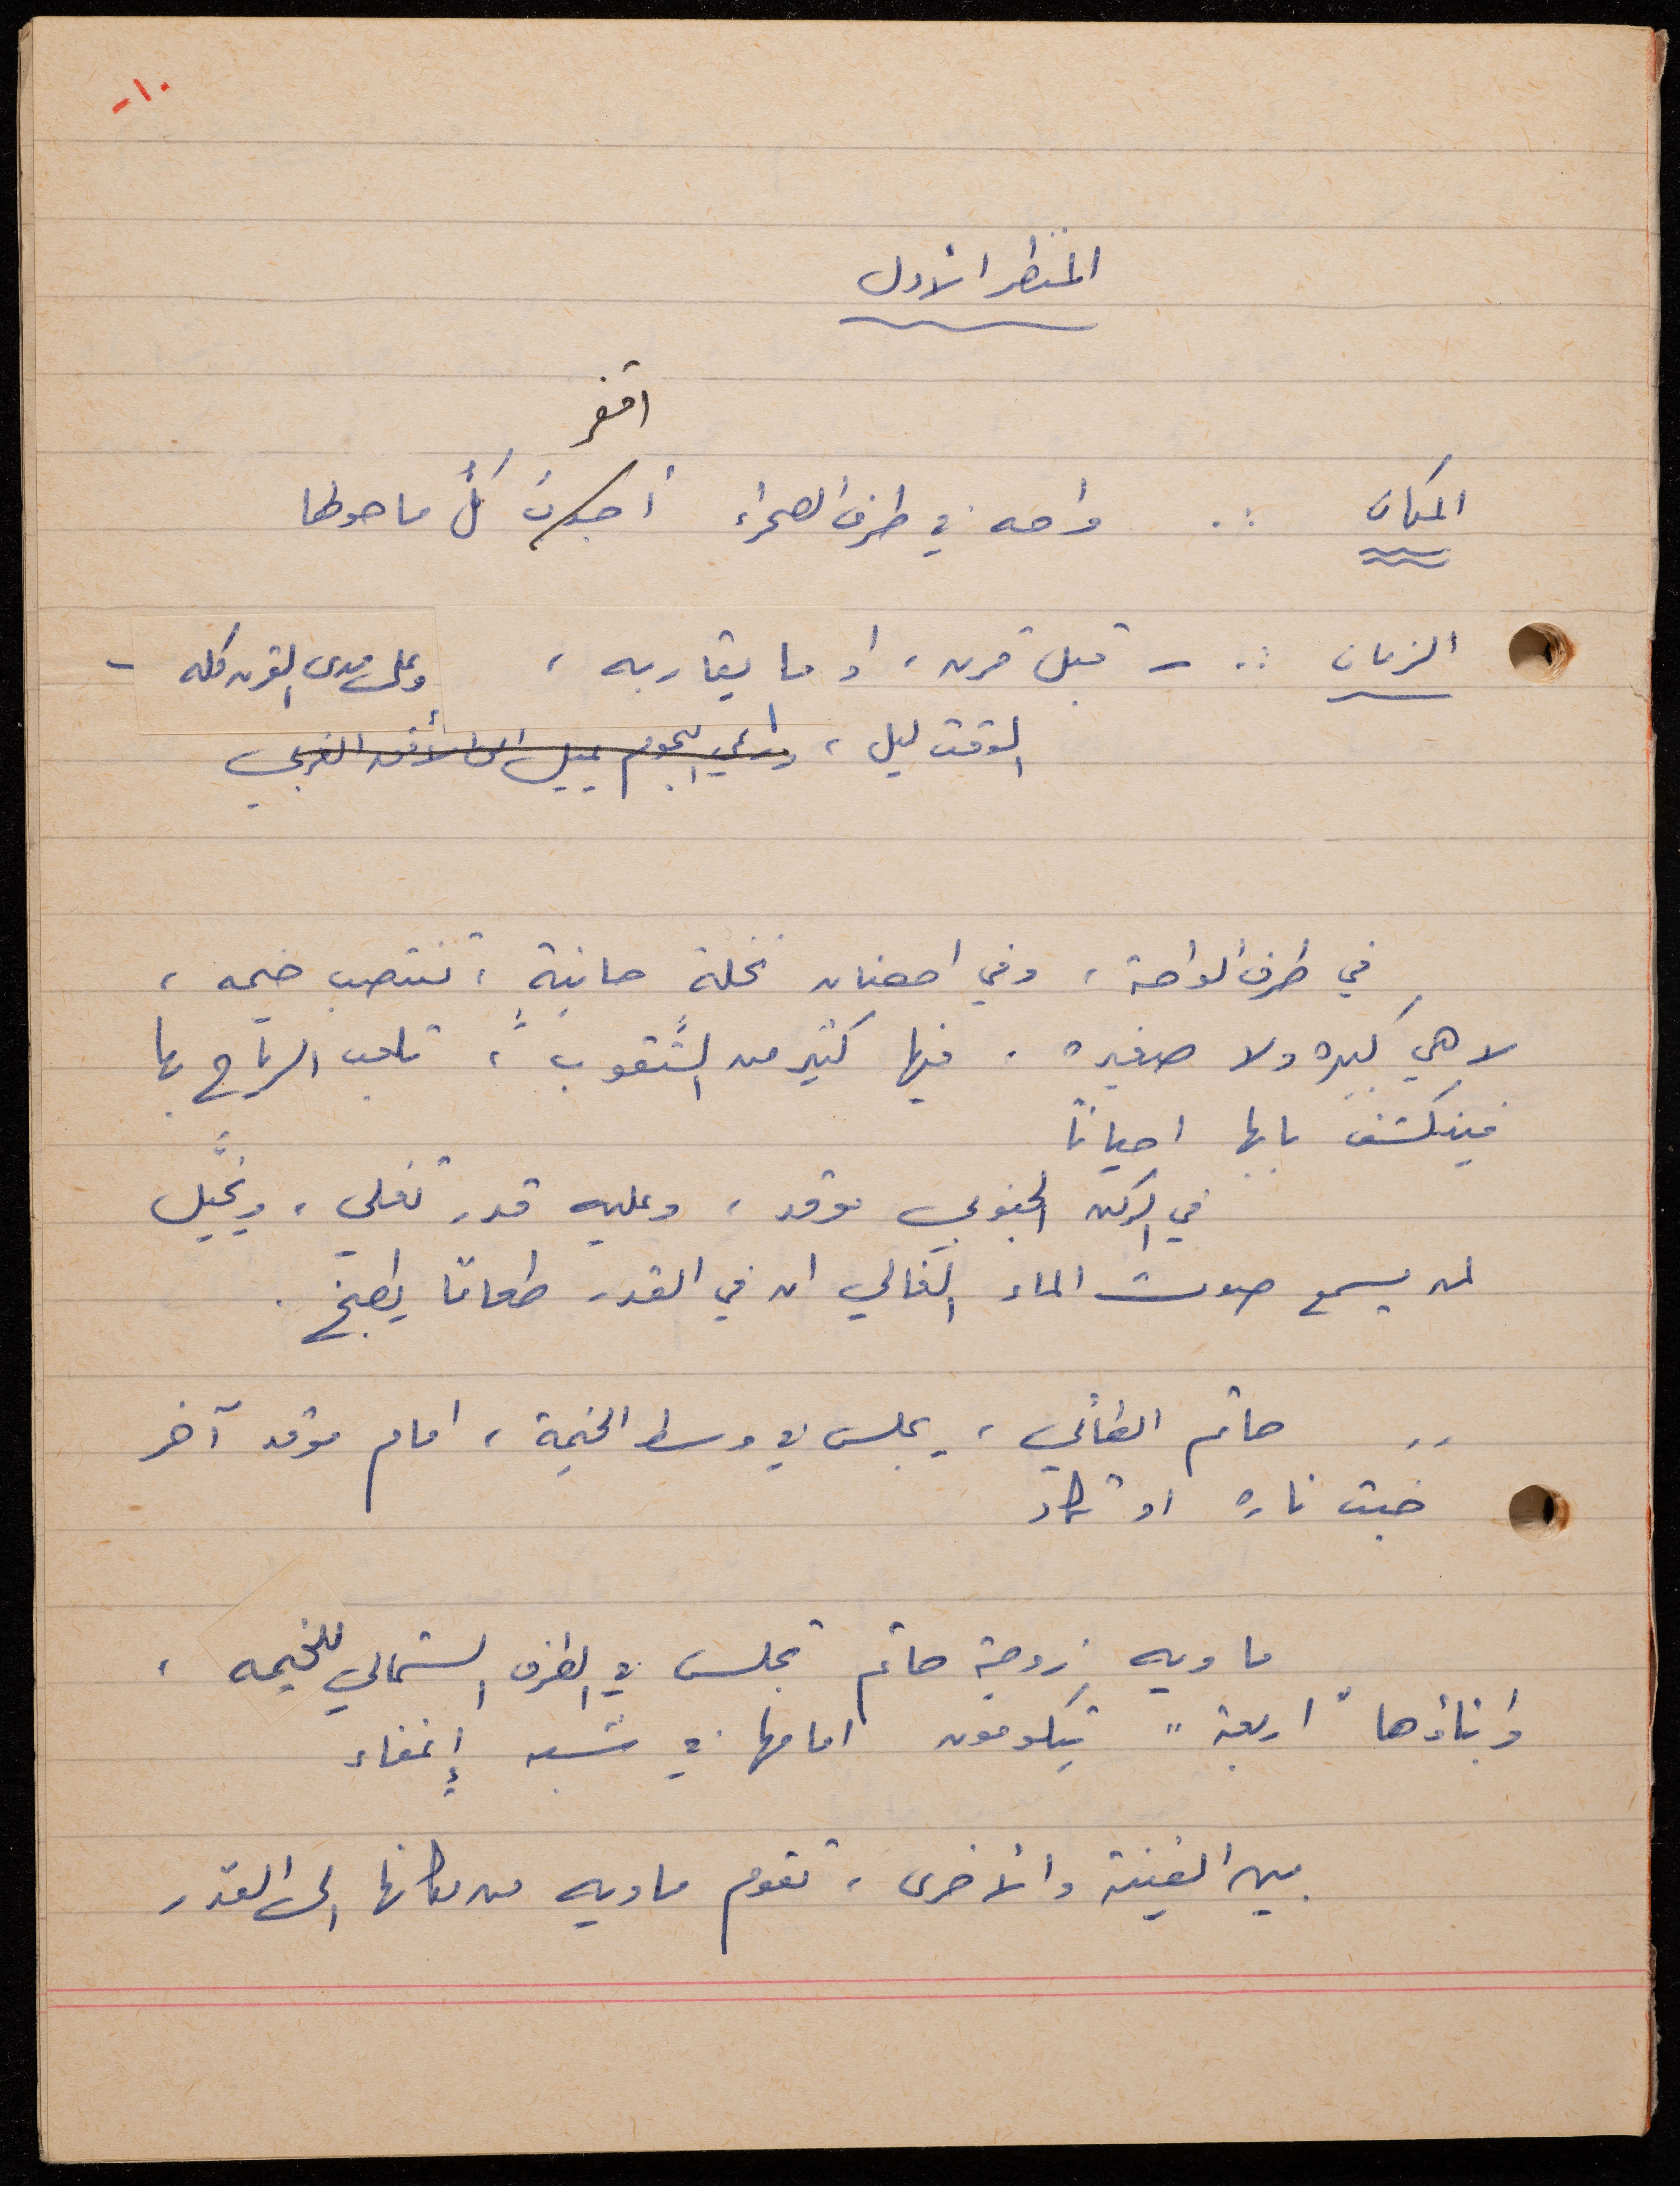 -١٠
المنظر الأول
اقفر
المكان :. واحه في طرف الصحراء أجدبَ كلُّ ما حولها
الزمان :. - قبل قرن، او ما يقاربه، وعلى مدى القرن كله -
الوقت ليل، وراعي النجوم يميل الى الأفق الغربي
في طرف الواحة، وفي احضان نخلة حانيةٍ، تنتصب خيمه،
لا هي كبيره ولا صغيره. فيها كثير من الثُّقوب، تلعب الرياح بها
فينكشف بابها احيانا
في الركن الجنوبي موقد، وعليه قدر تغلي، ويُخيّل
لمن يسمع صوت الماء الغالي ان في القدر طعامًا يطبخ.
.. حاتم الطائي، يجلس في وسط الخيمة، امام موقد آخر
خبت ناره او تكاد
ماويه زوجة حاتم تجلس في الطرف الشمالي للخيمه،
وابناؤها " اربعة " يتكومون امامها في شبه إغفاء
بين الفينة والأخرى، تقوم ماويه من مكانها الى القدر